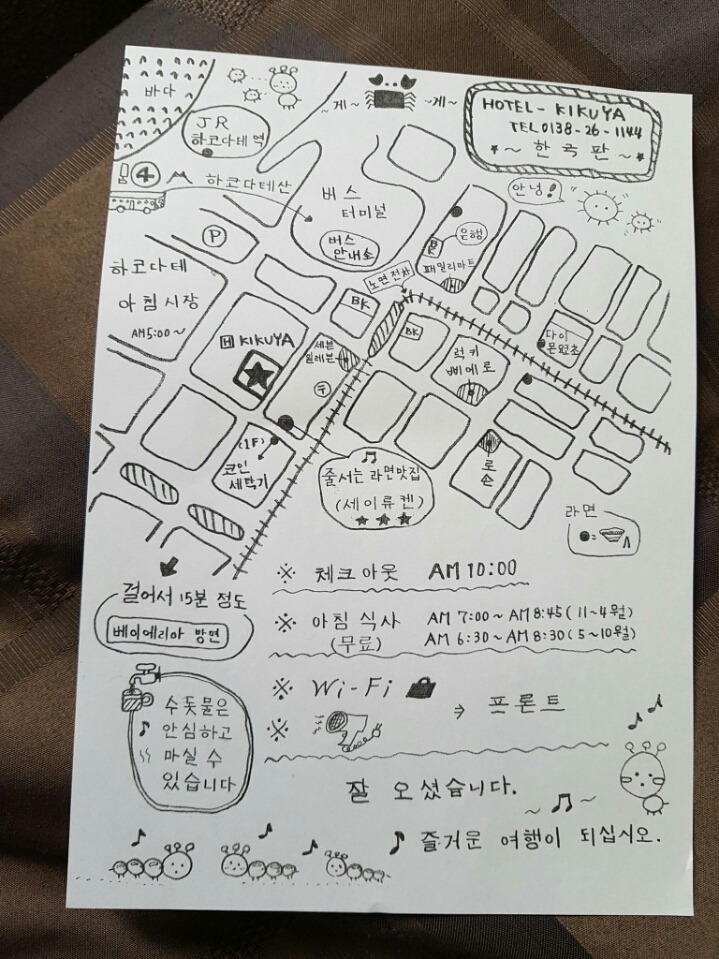 바다
JR
하코다테역
~게~
~게~
HOTEL - KIKUYA
TEL 0138-26-1144
~ 한국판 ~
안녕!
4
하코다테산
버스
터미널
버스
안내소
P
은행
BK
패밀리마트
노면전차
하코다테
아침시장
AM5:00~
BK
BK
H KIKUYA
세븐
일레븐
〒
럭키
삐에로
다이
몬요코쵸
(1F)
코인
세탁기
줄서는 라면맛집
(세이류켄)
★ ★ ★
로손
라면
● =
걸어서 15분 정도
베이에리아 방면
※ 체크아웃 AM 10:00
※ 아침 식사 AM 7:00 ~ AM 8:45 (11~4월)
(무료) AM 6:30 ~ AM 8:30 (5~10월)
※ Wi-Fi
※
⇒ 프론트
수돗물은
안심하고
마실 수
있습니다
잘 오셨습니다.
~♫~
♪ 즐거운 여행이 되십시오.